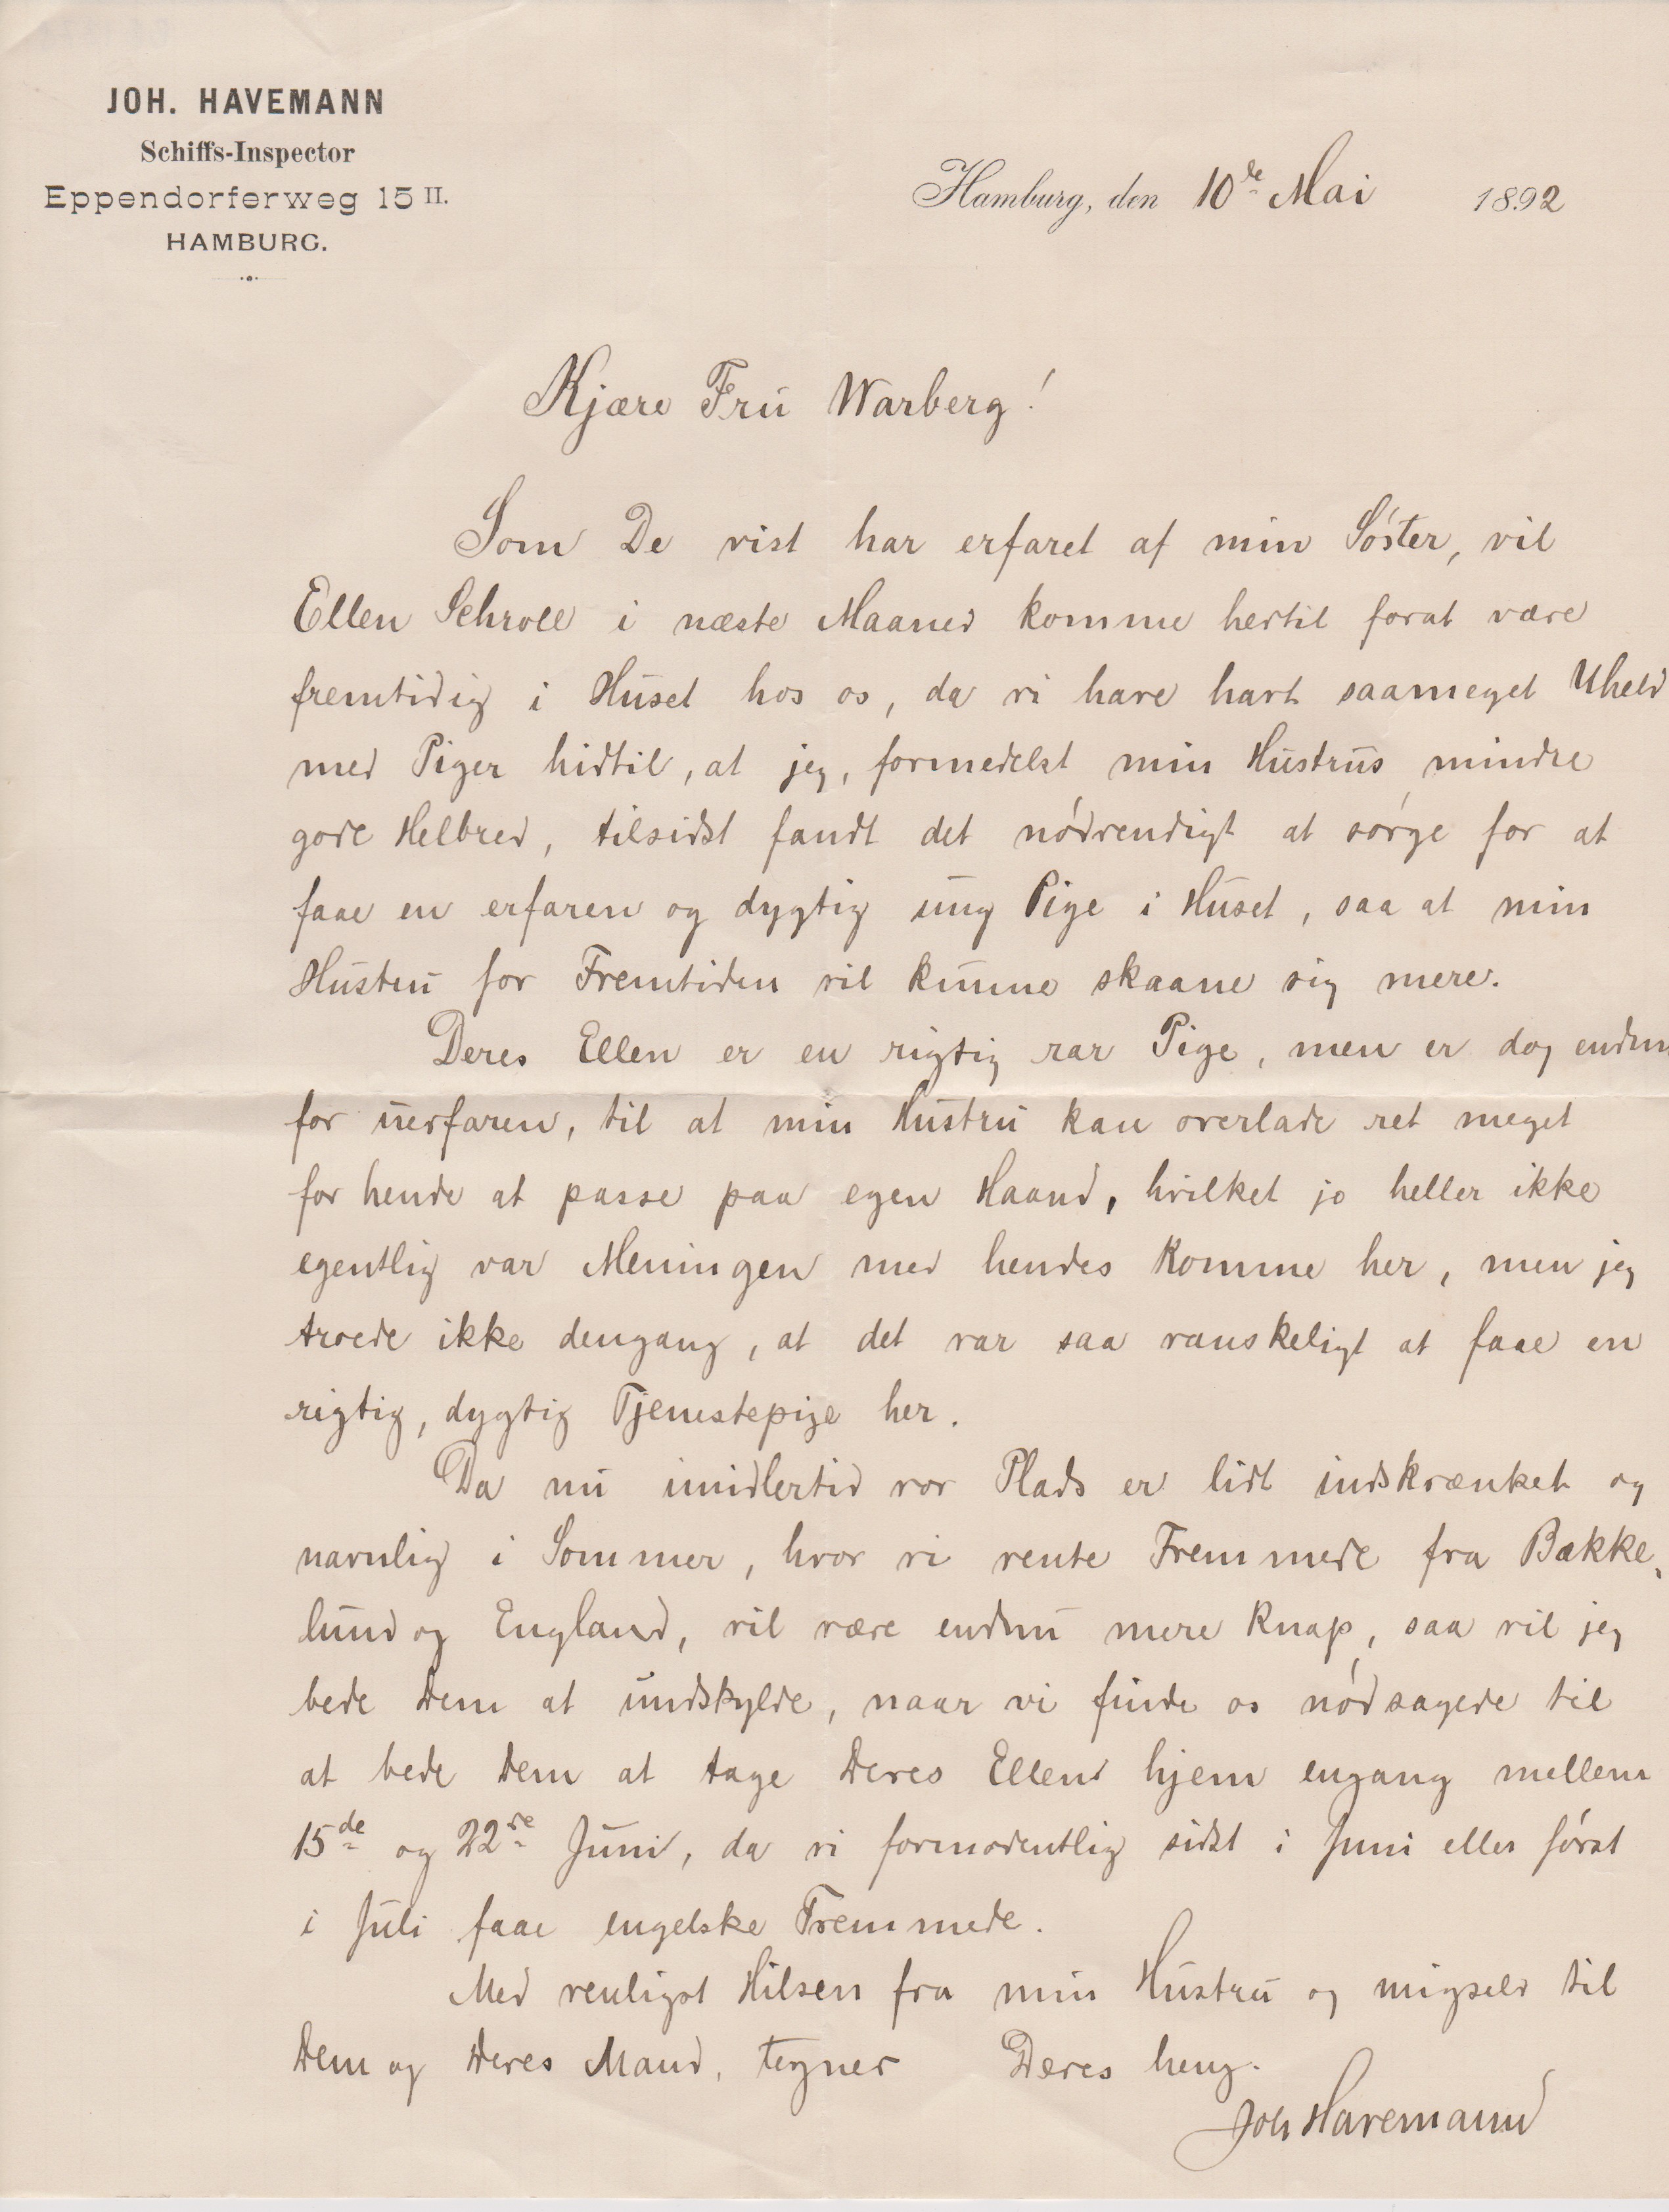 JOH. HAVEMANN
Schiffs-Inspector
Eppendorferweg 15 II.
HAMBURG.
Hamburg, den 10de Mai 1892
Kjære Fru Warberg!
Som De vist har erfaret af min Søster, vil
Ellen Schroll i næste Maaned komme hertil forat være
fremtidig i Huset hos os, da vi have havt saameget Uheld
med Piger hidtil, at jeg, formedelst min Hustrus mindre
gode Helbred, tilsidst fandt det nødvendigt at sørge for at
faae en erfaren og dygtig ung Pige i Huset, saa at min
Hustru for Fremtiden vil kunne skaane sig mere.
Deres Ellen er en rigtig rar Pige, men er dog endnu
for uerfaren, til at min Hustru kan overlade ret meget
for hende at passe paa egen Haand, hvilket jo heller ikke
egentlig var Meningen med hendes Komme her, men jeg
troede ikke dengang, at det var saa vanskeligt at faae en
rigtig, dygtig Tjenestepige her.
Da nu imidlertid vor Plads er lidt indskrænket og
navnlig i Sommer, hvor vi vente Fremmede fra Bække-
lund og England, vil være endnu mere Knap, saa vil jeg
bede Dem at undskylde, naar vi finde os nødsagede til
at bede Dem at tage Deres Ellen hjem engang mellem
15de og 22de Juni, da vi formodentlig sidst i Juni eller først
i Juli faae engelske Fremmede.
Med venligst Hilsen fra min Hustru og migselv til
Dem og Deres Mand, tegner Deres heng.
Joh Havemann